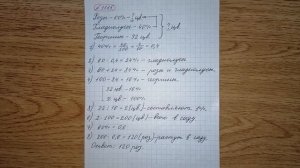 Розы - 60%
Гладиолусы - 40%
Георгины - 32 цв
1) 40% = 40/100 = 0,4
2) 60 · 0,4 = 24% - гладиолусы
3) 60 + 24 = 84% - розы и гладиолусы
4) 100 - 84 = 16% - георгины
32 цв - 16%
цв - 100%
5) 32 : 16 = 2 (цв) - составляют 1%
6) 2 · 100 = 200 (цв) - всего в саду
7) 60% = 0,6
8) 200 · 0,6 = 120 (роз) - растут в саду
Ответ: 120 роз